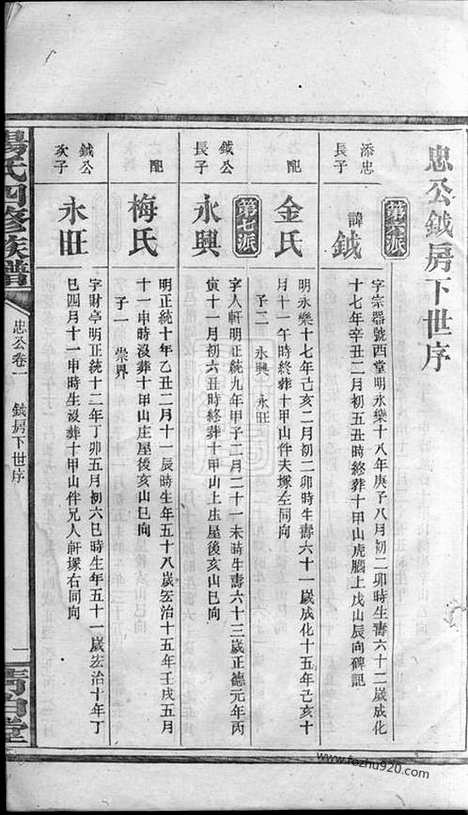 忠公鉞房下世序
第六派
添忠
長子
諱鉞
字宗器號西堂明永樂十八年庚子八月初二卯時生壽六十二歲成化
十七年辛丑二月初五丑時終葬十甲山虎腦上戌山辰向碑記
配
金氏
明永樂十七年己亥二月初二卯時生壽六十一歲成化十五年己亥十
月十一午時終葬十甲山伴夫塚左同向
子二 永興 永旺
第七派
鉞公
長子
永興
字人軒明正統九年甲子二月二十一未時生壽六十三歲正德元年丙
寅十一月初六丑時終葬十甲山上庄屋後亥山巳向
配
梅氏
明正統十年乙丑二月十一辰時生年五十八歲宏治十五年壬戌五月
十一申時沒葬十甲山庄屋後亥山巳向
子一 崇界
鉞公
次子
永旺
字財亭明正統十二年丁卯五月初六巳時生年五十一歲宏治十年丁
巳四月十一申時生沒葬十甲山伴兄人軒塚右同向
楊氏四修族譜
忠公卷一 鉞房下世序
一
清白堂
www.fozhu920.com